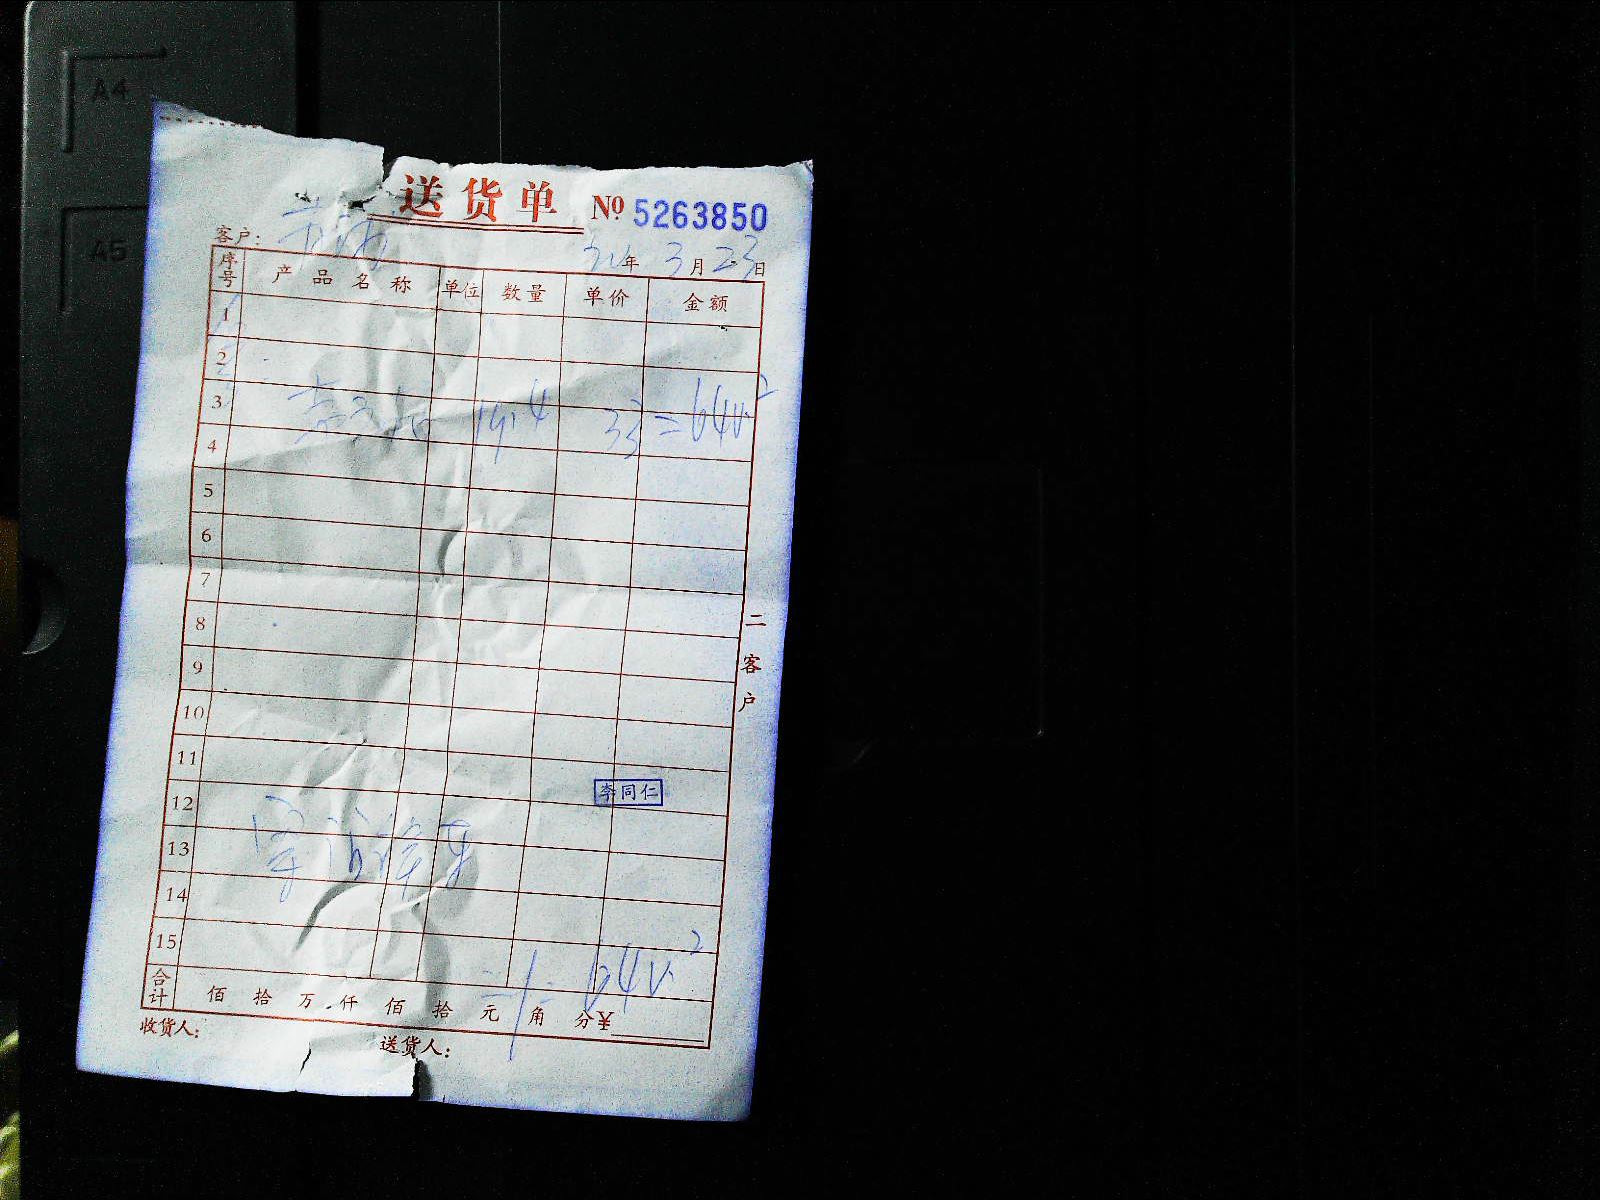 A4
A5
送货单 № 5263850
客户：
年 3月23日
序号 产品名称 单位 数量 单价 金额
1
2
3 19.4 33 = 640.2
4
5
6
7
8
9
10
11
12 李同仁
13
14
15
640.2
合计 佰 拾 万 仟 佰 拾 元 角 分 ¥
收货人： 送货人：
二客户